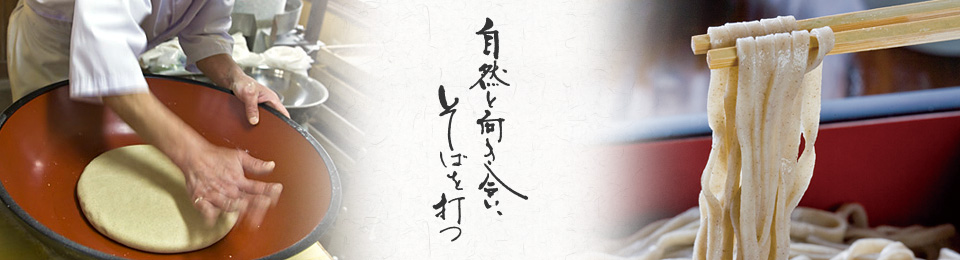 自然と向き合い、
そばを打つ